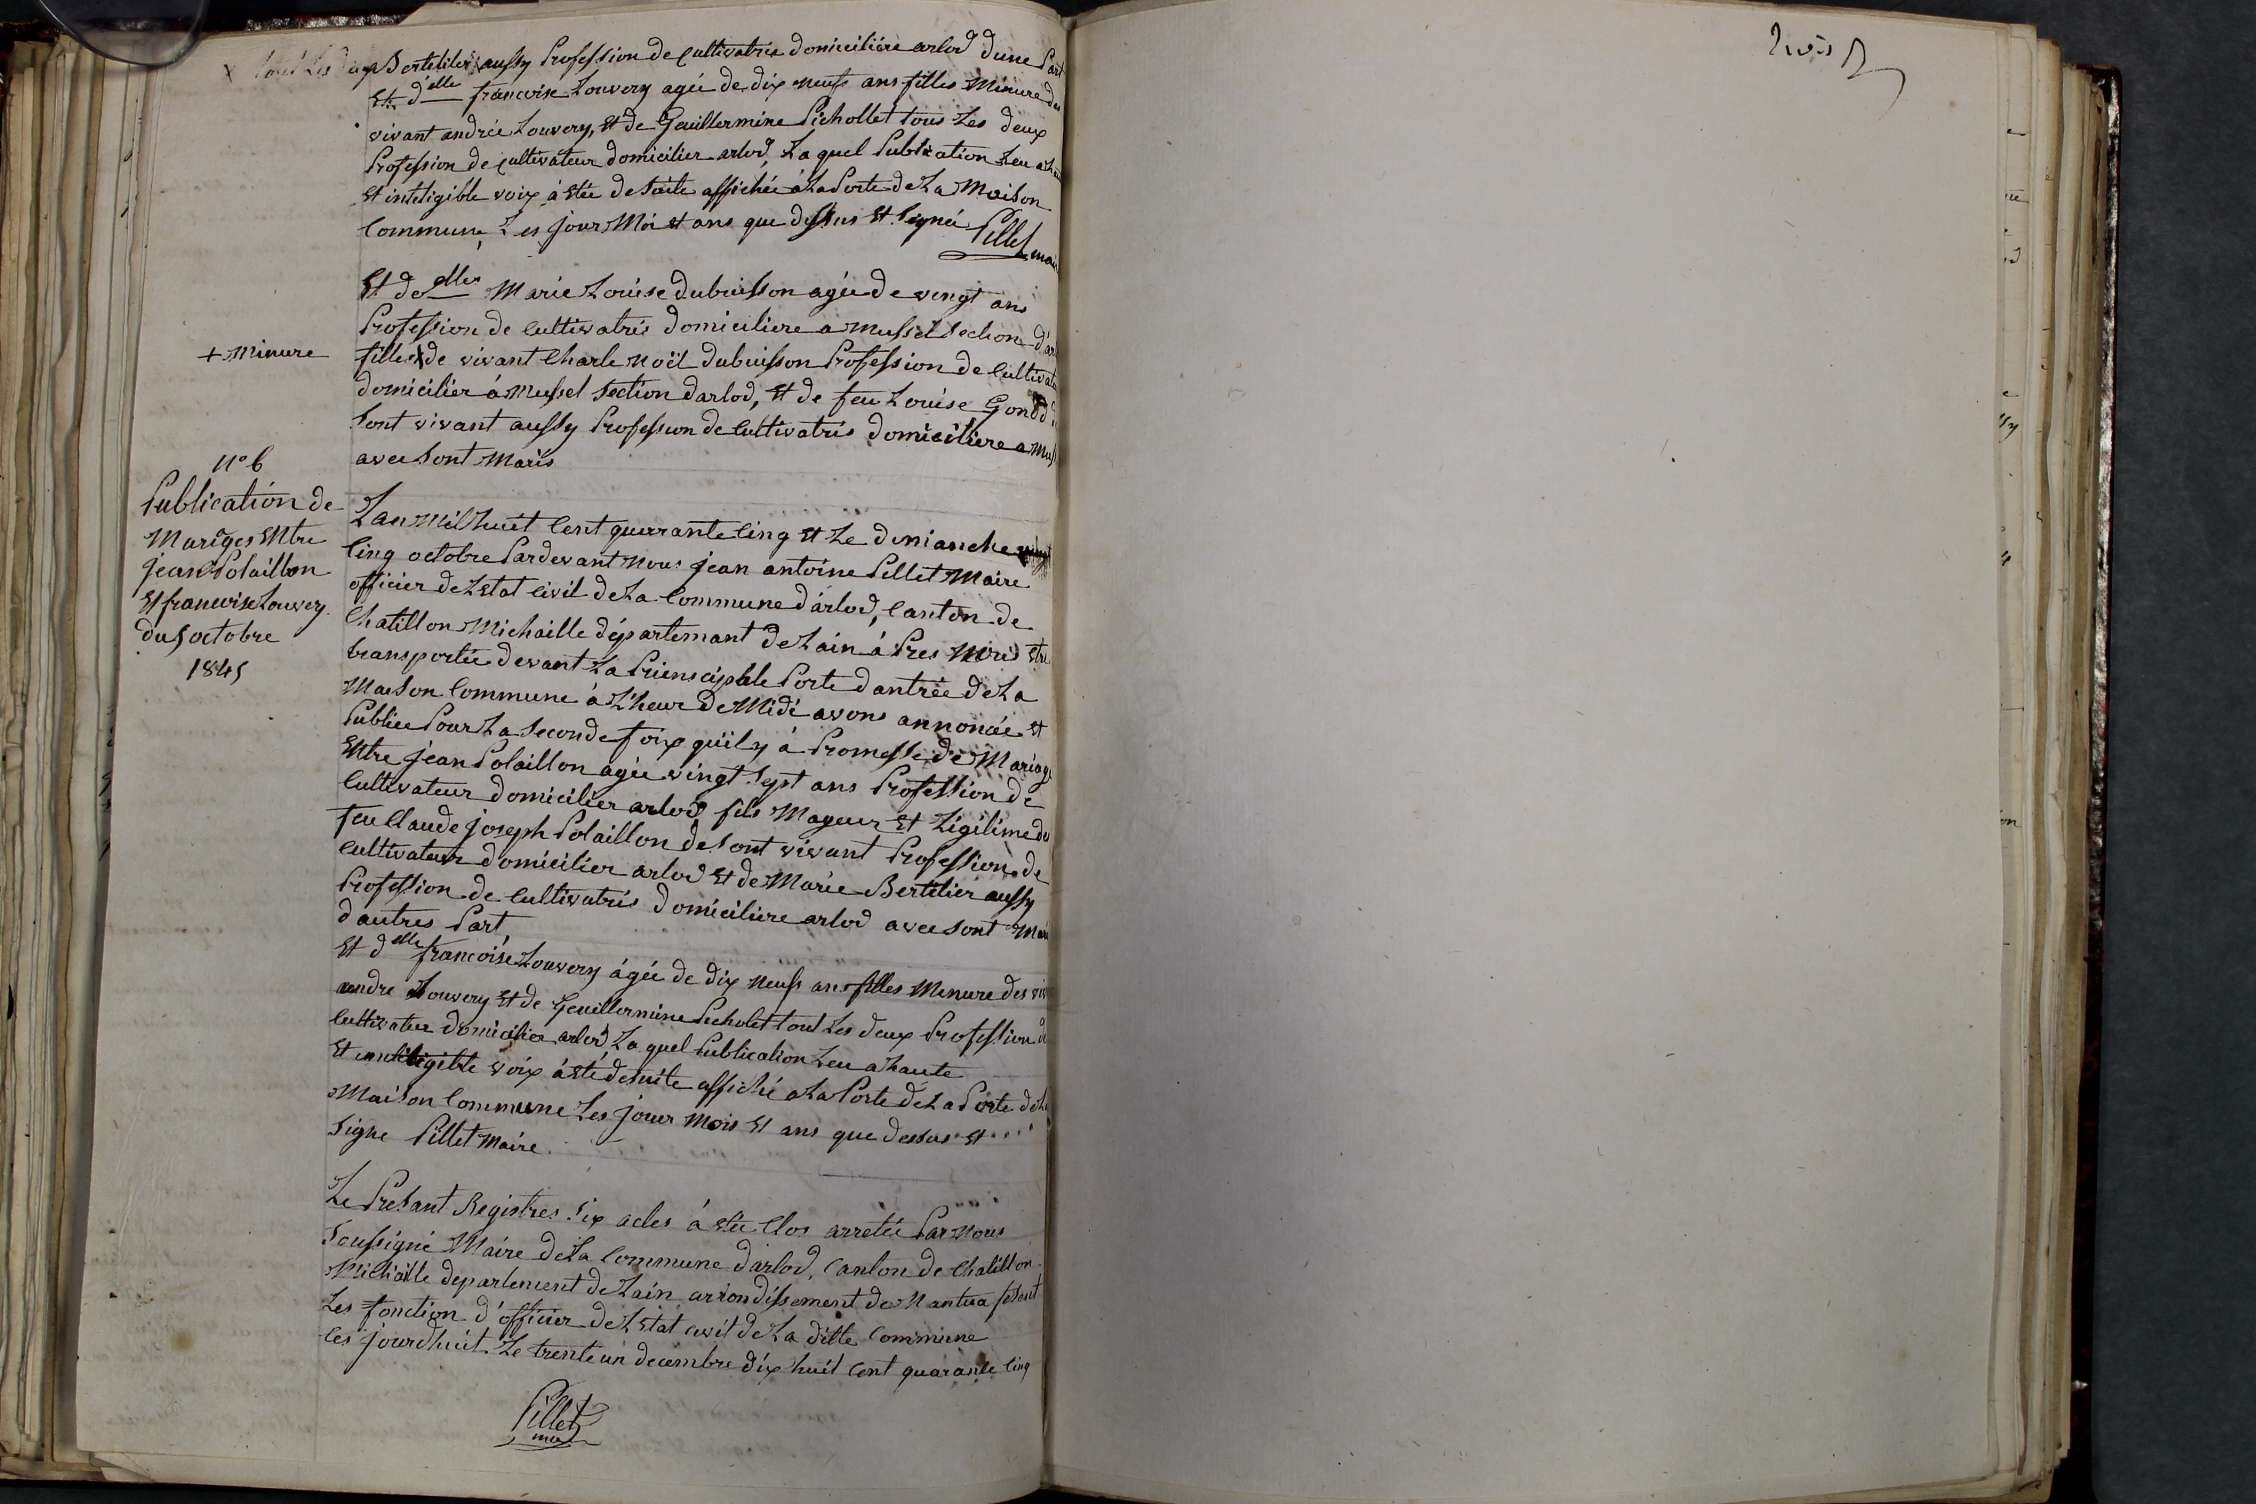 x tout Les deux Bertilier aussy Profession de Cultivatris domiciliére arlod dune Part
Et delle francoise Louvery agée de dix neufs ans filles Minure des
vivant andrée Louvery, Et de Geuillermine Pichollet tous Les deux
Profession de Cultivateur domicilier arlod, La quel Publication Leu a hau
Et inteligible voix à Etée de Suite affichée à La Porte de La Maison
Commune, Les jour Moi et ans que dessus Et Signée Pillet mai
Et de elles Marie Louise dubuisson agée de vengt ans
Profession de Cultivatris domiciliere a Mussel Section d'ar
+ Minure
filles + de vivant Charle noël dubuisson Profession de Cultivate
domicilier à Mussel Section darlod, Et de feu Louise Gondd
Sont vivant aussy Profession de Cultivatris domiciliere a Mus
avec Sont Maris
n° 6
Publication de
Mariges Entre
jean Polaillon
Et francoise Louvery
du 5 octobre
1845
Lan Mil huit Cent querrante Cinq Et Le dimianche
Cinq octobre Pardevant nous jean antoine Pillet Maire
officier de L'Etat Civil de La Commune d'arlod, Canton de
Chatillon Michaille département de Lain à Pres Nous Etre
transportée devant La Prienscipble Porte dantrée de La
Maison Commune à L'heur de Midi avons annoncée Et
Publiee Pour La Seconde foix qu'il y à Promesse de Mariage
Entre jean Polaillon agée vingt Sept ans Profession de
Cultivateur domicilier arlod fils Mageur Et Ligitime de
feu Claude joseph Polaillon de Sont vivant Profession de
Cultivateur domicilier arlod Et de Marie Bertilier aussy
Profession de Cultivatris domiciliere arlod avec Sont Mari
dautres Part
Et delle francoise Louvery ágée de dix neufs ans filles Menure des viv
andre Louvery Et de Geuillermine Picholet tout Les deux Profession de
Cultivateur domicilier arlod, La quel Publication Leu a haute
Et inteligible voix à Eté de Suite affiché a La Porte de La Porte de La
Maison Commune Les jour Mois Et ans que dessus Et
Signe Pillet Maire
Le Presant Registres Six actes á Etée Clos arretée Par Nous
Soussigné Maire de La Commune darlod, Canton de Chatillon
Michaille departement de Lain arrondissement de Nantua fesent
Les fonction d'officier de L'Etat civil de La ditte Commune
Ces jourdhuit Le trente un decembre dix huit Cent quarante Cinq
Pillet